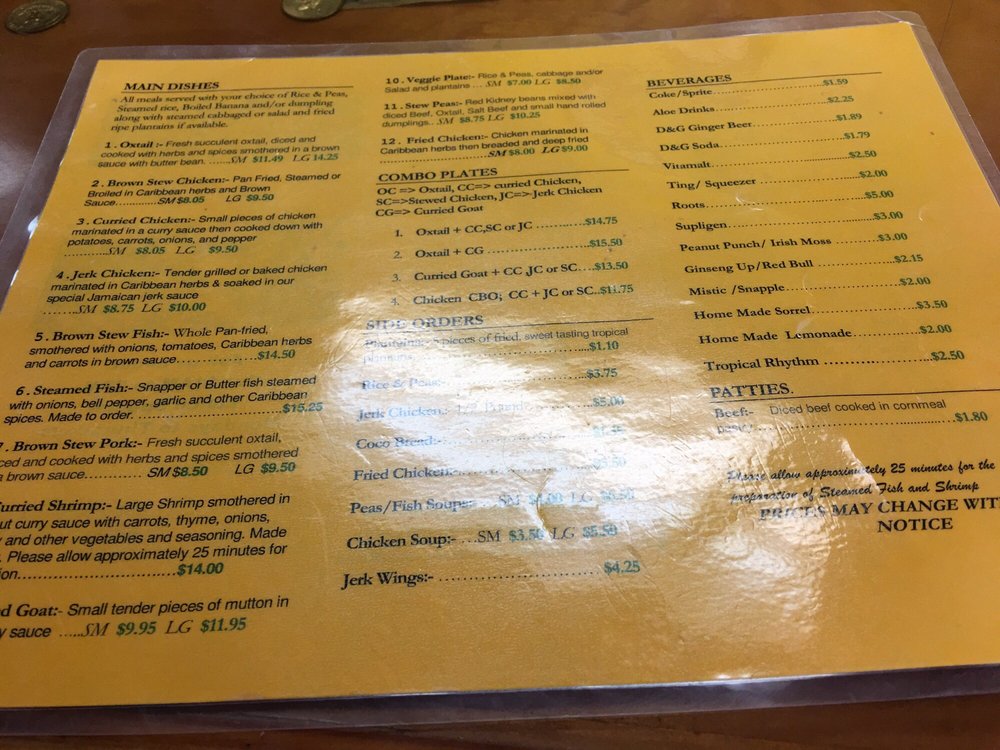 MAIN DISHES
All meals served with your choice of Rice & Peas,
Steamed rice, Boiled Banana and/or dumpling
along with steamed cabbaged or salad and fried
ripe plantains if available.
1. Oxtail:- Fresh succulent oxtail, diced and
cooked with herbs and spices smothered in a brown
sauce with butter bean. ......SM $11.49 LG 14.25
2. Brown Stew Chicken:- Pan Fried, Steamed or
Broiled in Caribbean herbs and Brown
Sauce............SM $8.05 LG $9.50
3. Curried Chicken:- Small pieces of chicken
marinated in a curry sauce then cooked down with
potatoes, carrots, onions, and pepper
..........SM $8.05 LG $9.50
4. Jerk Chicken:- Tender grilled or baked chicken
marinated in Caribbean herbs & soaked in our
special Jamaican jerk sauce
.......SM $8.75 LG $10.00
5. Brown Stew Fish:- Whole Pan-fried,
smothered with onions, tomatoes, Caribbean herbs
and carrots in brown sauce....................$14.50
6. Steamed Fish:- Snapper or Butter fish steamed
with onions, bell pepper, garlic and other Caribbean
spices. Made to order....................................$15.25
7. Brown Stew Pork:- Fresh succulent oxtail,
ced and cooked with herbs and spices smothered
a brown sauce............... SM $8.50 LG $9.50
urried Shrimp:- Large Shrimp smothered in
ut curry sauce with carrots, thyme, onions,
and other vegetables and seasoning. Made
. Please allow approximately 25 minutes for
on..............................$14.00
d Goat:- Small tender pieces of mutton in
y sauce ......SM $9.95 LG $11.95
10. Veggie Plate:- Rice & Peas, cabbage and/or
Salad and plantains ... SM $7.00 LG $8.50
11. Stew Peas:- Red Kidney beans mixed with
diced Beef, Oxtail, Salt Beef and small hand rolled
dumplings.. SM $8.75 LG $10.25
12. Fried Chicken:- Chicken marinated in
Caribbean herbs then breaded and deep fried
..............................SM $8.00 LG $9.00
COMBO PLATES
OC => Oxtail, CC=> curried Chicken,
SC=>Stewed Chicken, JC=>Jerk Chicken
CG=> Curried Goat
1. Oxtail + CC,SC or JC .............$14.75
2. Oxtail + CG ........................$15.50
3. Curried Goat + CC JC or SC....$13.50
4. Chicken CBO; CC + JC or SC..$11.75
SIDE ORDERS
Plantains:- pieces of fried, sweet tasting tropical
plantains..............................$1.10
Rice & Peas:- $3.75
Jerk Chicken:- $5.00
Coco Bread:-
Fried Chicken:-
Peas/Fish Soup:- SM LG
Chicken Soup:-....SM $3.50 LG $5.50
Jerk Wings:- ..............................$4.25
BEVERAGES
Coke/Sprite..............................$1.59
Aloe Drinks..............................$2.25
D&G Ginger Beer......................$1.89
D&G Soda..............................$1.79
Vitamalt..............................$2.50
Ting/ Squeezer ......................$2.00
Roots..............................$5.00
Supligen..............................$3.00
Peanut Punch/ Irish Moss .........$3.00
Ginseng Up/Red Bull ................$2.15
Mistic /Snapple......................$2.00
Home Made Sorrel....................$3.50
Home Made Lemonade..............$2.00
Tropical Rhythm ......................$2.50
PATTIES.
Beef:- Diced beef cooked in cornmeal
..............................$1.80
Please allow approximately 25 minutes for the
preparation of Steamed Fish and Shrimp
PRICES MAY CHANGE WIT
NOTICE